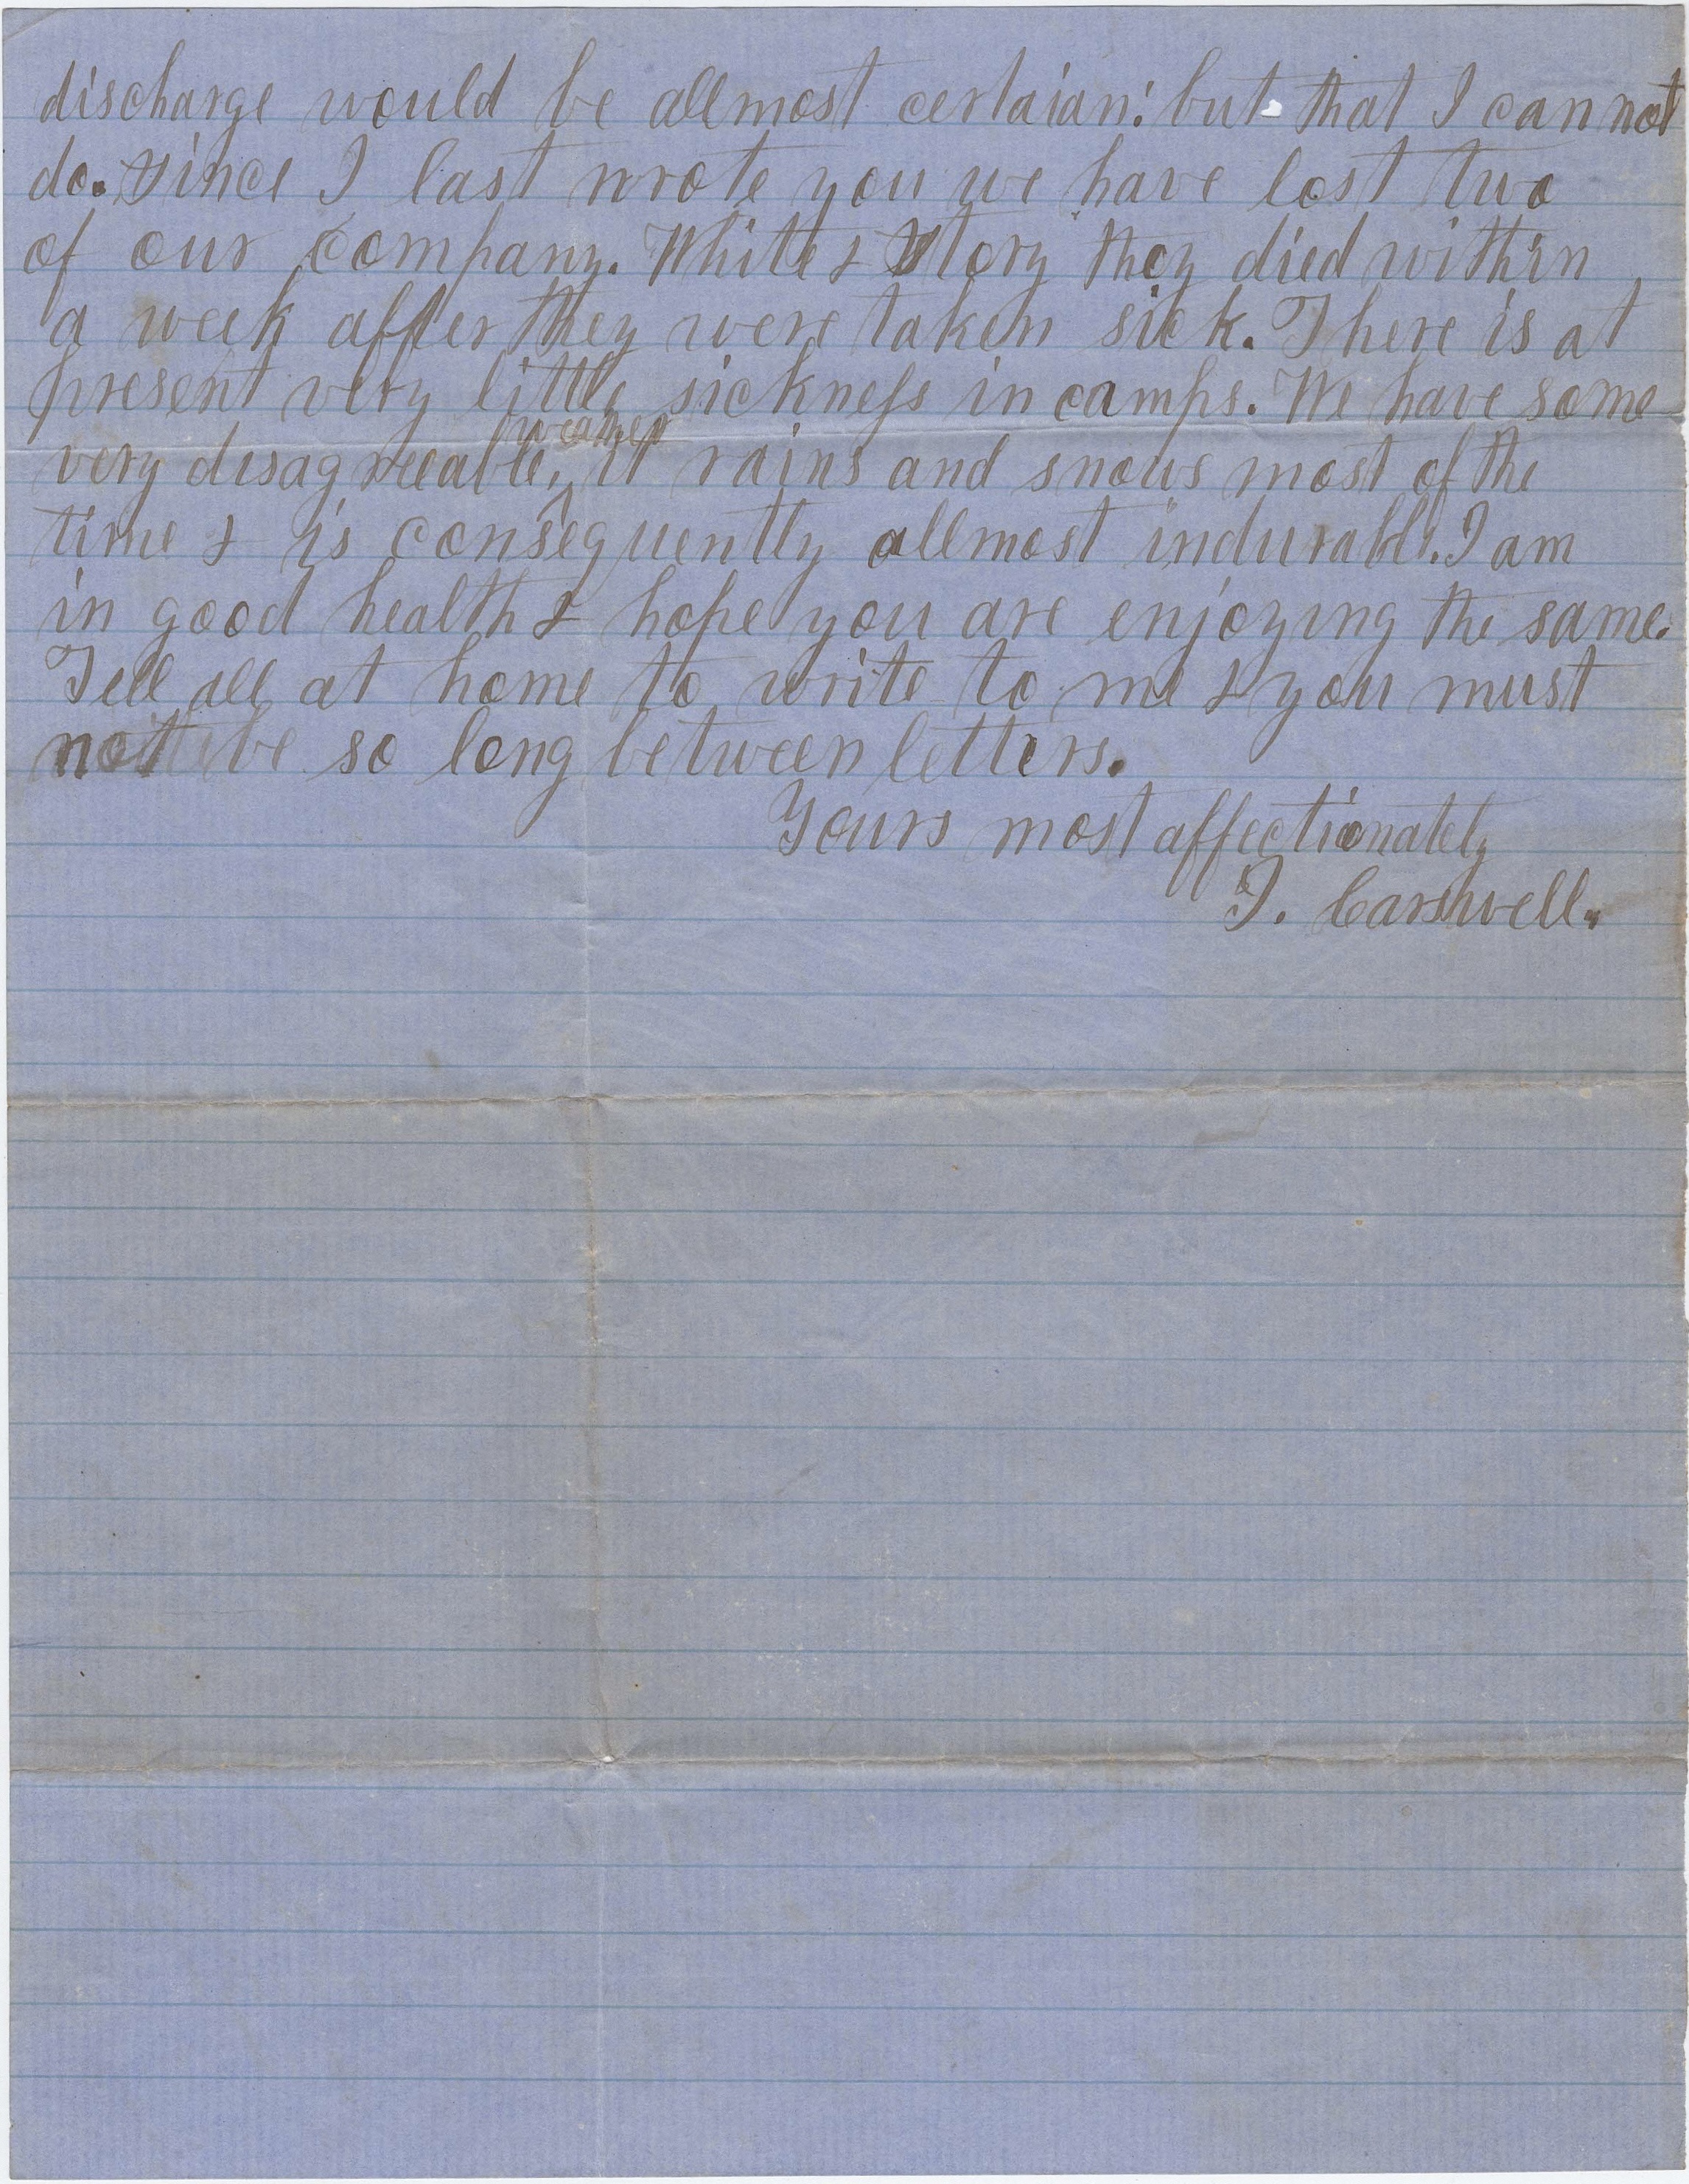 discharge would be allmost certaian: but that I can not
do. Since I last wrote you we have lost two
of our company. White & Story they died within
a week after they were taken sick. There is at
present very little sickness in camps. We have some
weather
very disagreeable, it rains and snows most of the
time & is consequently allmost indurable. I am
in good health & hope you are enjoying the same.
Tell all at home to write to me & you must
not be so long between letters.
Yours most affectionately
J. Carswell.